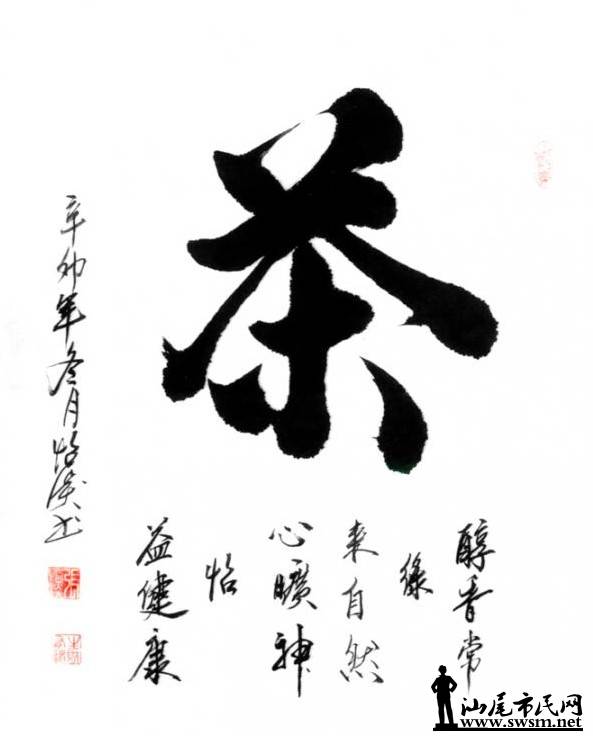 茶
醇香常
缘
来自然
心曠神
怡
益健康
辛卯年冬月怡溪书
汕尾市民网
www.swsm.net